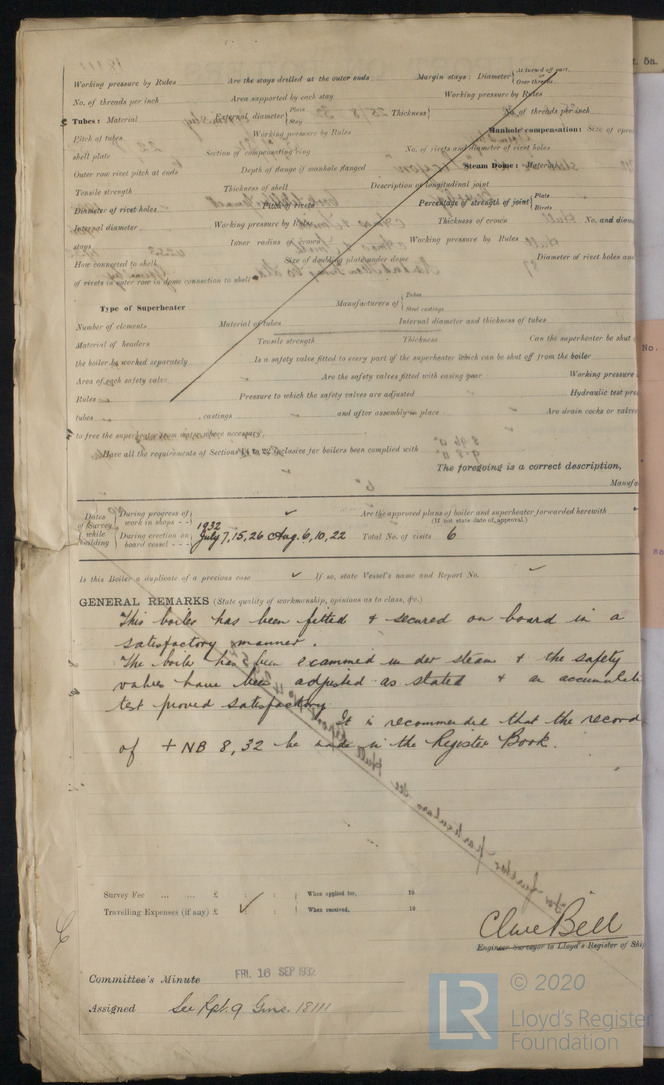 Working pressure by Rules Are the stays drilled at the outer ends Margin stays: Diameter { At turned off part, Over threads
No. of threads per inch Area supported by each stay Working pressure by Rules
Tubes: Material External diameter { Plain Stay Thickness { No. of threads per inch
Pitch of tubes Working pressure by Rules Manhole compensation: Size of
shell plate Section of compensating ring No. of rivets and diameter of rivet holes
Outer row rivet pitch at ends Depth of flange if manhole flanged Steam Dome: Material
Tensile strength Thickness of shell Description of longitudinal joint
Diameter of rivet holes Pitch of rivets Percentage of strength of joint { Plate Rivets
Internal diameter Working pressure by Rules Thickness of crown No. and
stays Inner radius of crown Working pressure by Rules
How connected to shell Size of doubling plate under dome Diameter of rivet holes and
of rivets in outer row in dome connection to shell
Type of Superheater Manufacturers of { Tubes Steel castings
Number of elements Material of tubes Internal diameter and thickness of tubes
Material of headers Tensile strength Thickness Can the superheater be shut
the boiler be worked separately Is a safety valve fitted to every part of the superheater which can be shut off from the boiler
Area of each safety valve Are the safety valves fitted with easing gear Working pressure
Rules Pressure to which the safety valves are adjusted Hydraulic test
tubes castings and after assembly in place Are drain cocks or valves
to free the superheater from water where necessary
Have all the requirements of Sections 14 to 22 inclusive for boilers been complied with
The foregoing is a correct description,
Dates of Survey while building { During progress of work in shops - - ✓ Are the approved plans of boiler and superheater forwarded herewith
(If not state date of approval.)
1932
During erection on board vessel - - July 7, 15, 26 Aug. 6, 10, 22 Total No. of visits 6
Is this Boiler a duplicate of a previous case ✓ If so, state Vessel's name and Report No. ✓
GENERAL REMARKS (State quality of workmanship, opinions as to class, &c.)
This boiler has been fitted & secured on board in a
satisfactory manner.
The boiler has been examined under steam & the safety
valves have been adjusted as stated & an
test proved satisfactory
It is recommended that the record
of + NB 8,32 be made in the Register Book.
Survey Fee ... ... £ : : When applied for, 19
Travelling Expenses (if any) £ ✓ : : When received, 19
Clive Bell
Engineer Surveyor to Lloyd's Register of
Committee's Minute FRI. 16 SEP 1932
Assigned See Rpt. 9 Gms. 18111
LR © 2020
Lloyd's Register
Foundation